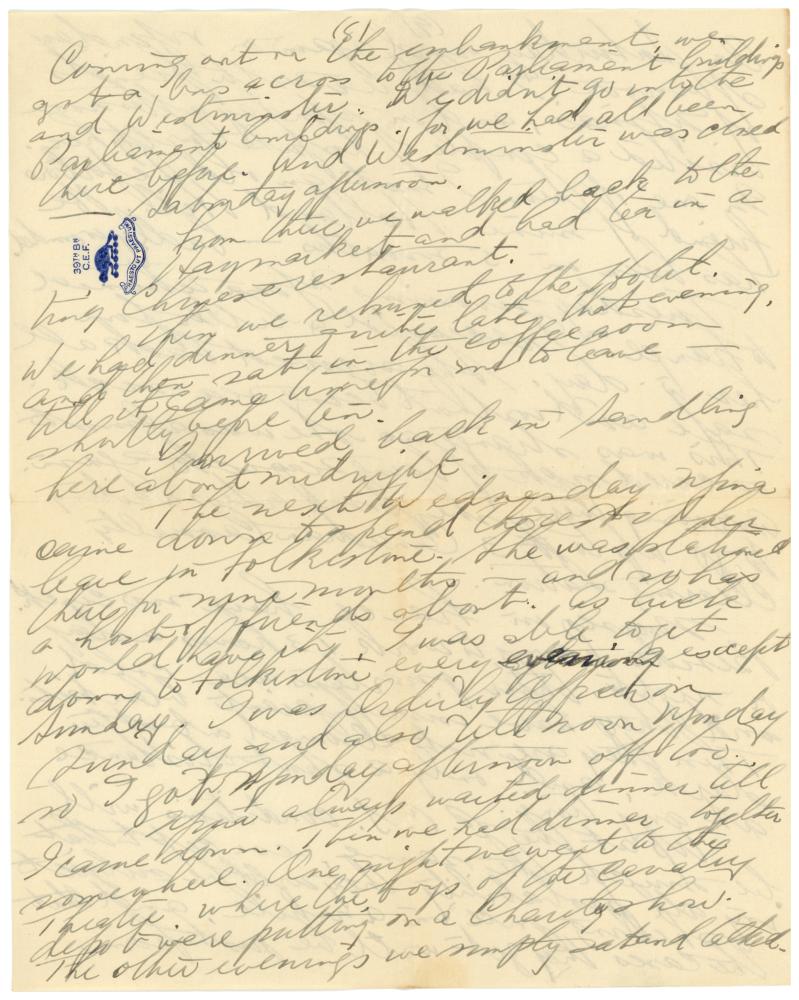 (8)
Coming out on the embankment, we
got a bus across to the Parliament buildings
and Westminster. We didn't go into the
Parliament buildings, for we had all been
there before. And Westminster was closed
— Saturday afternoon.
From there we walked back to the
Haymarket and had tea in a
tiny Chinese restaurant.
Then we returned to the Hotel.
We had dinner quite late that evening,
and then sat in the coffee room
till it came time for me to leave —
shortly before ten.
I arrived back in Sandling
here about midnight.
The next Wednesday Mina
came down to spend the rest of her
leave in Folkestone. She was stationed
there for nine months — and so has
a host of friends about. As luck
would have it, I was able to get
down to Folkestone every evening except
Sunday. I was Orderly Officer on
Sunday and also till noon Monday
so I got Monday afternoon off too.
Mina always waited dinner till
I came down. Then we had dinner together
somewhere. One night we went to the
Theatre where the boys of the cavalry
depot were putting on a Charity show.
The other evenings we simply sat and talked.
39TH BN
C.E.F.
PRAESTO UT PRAESTIM